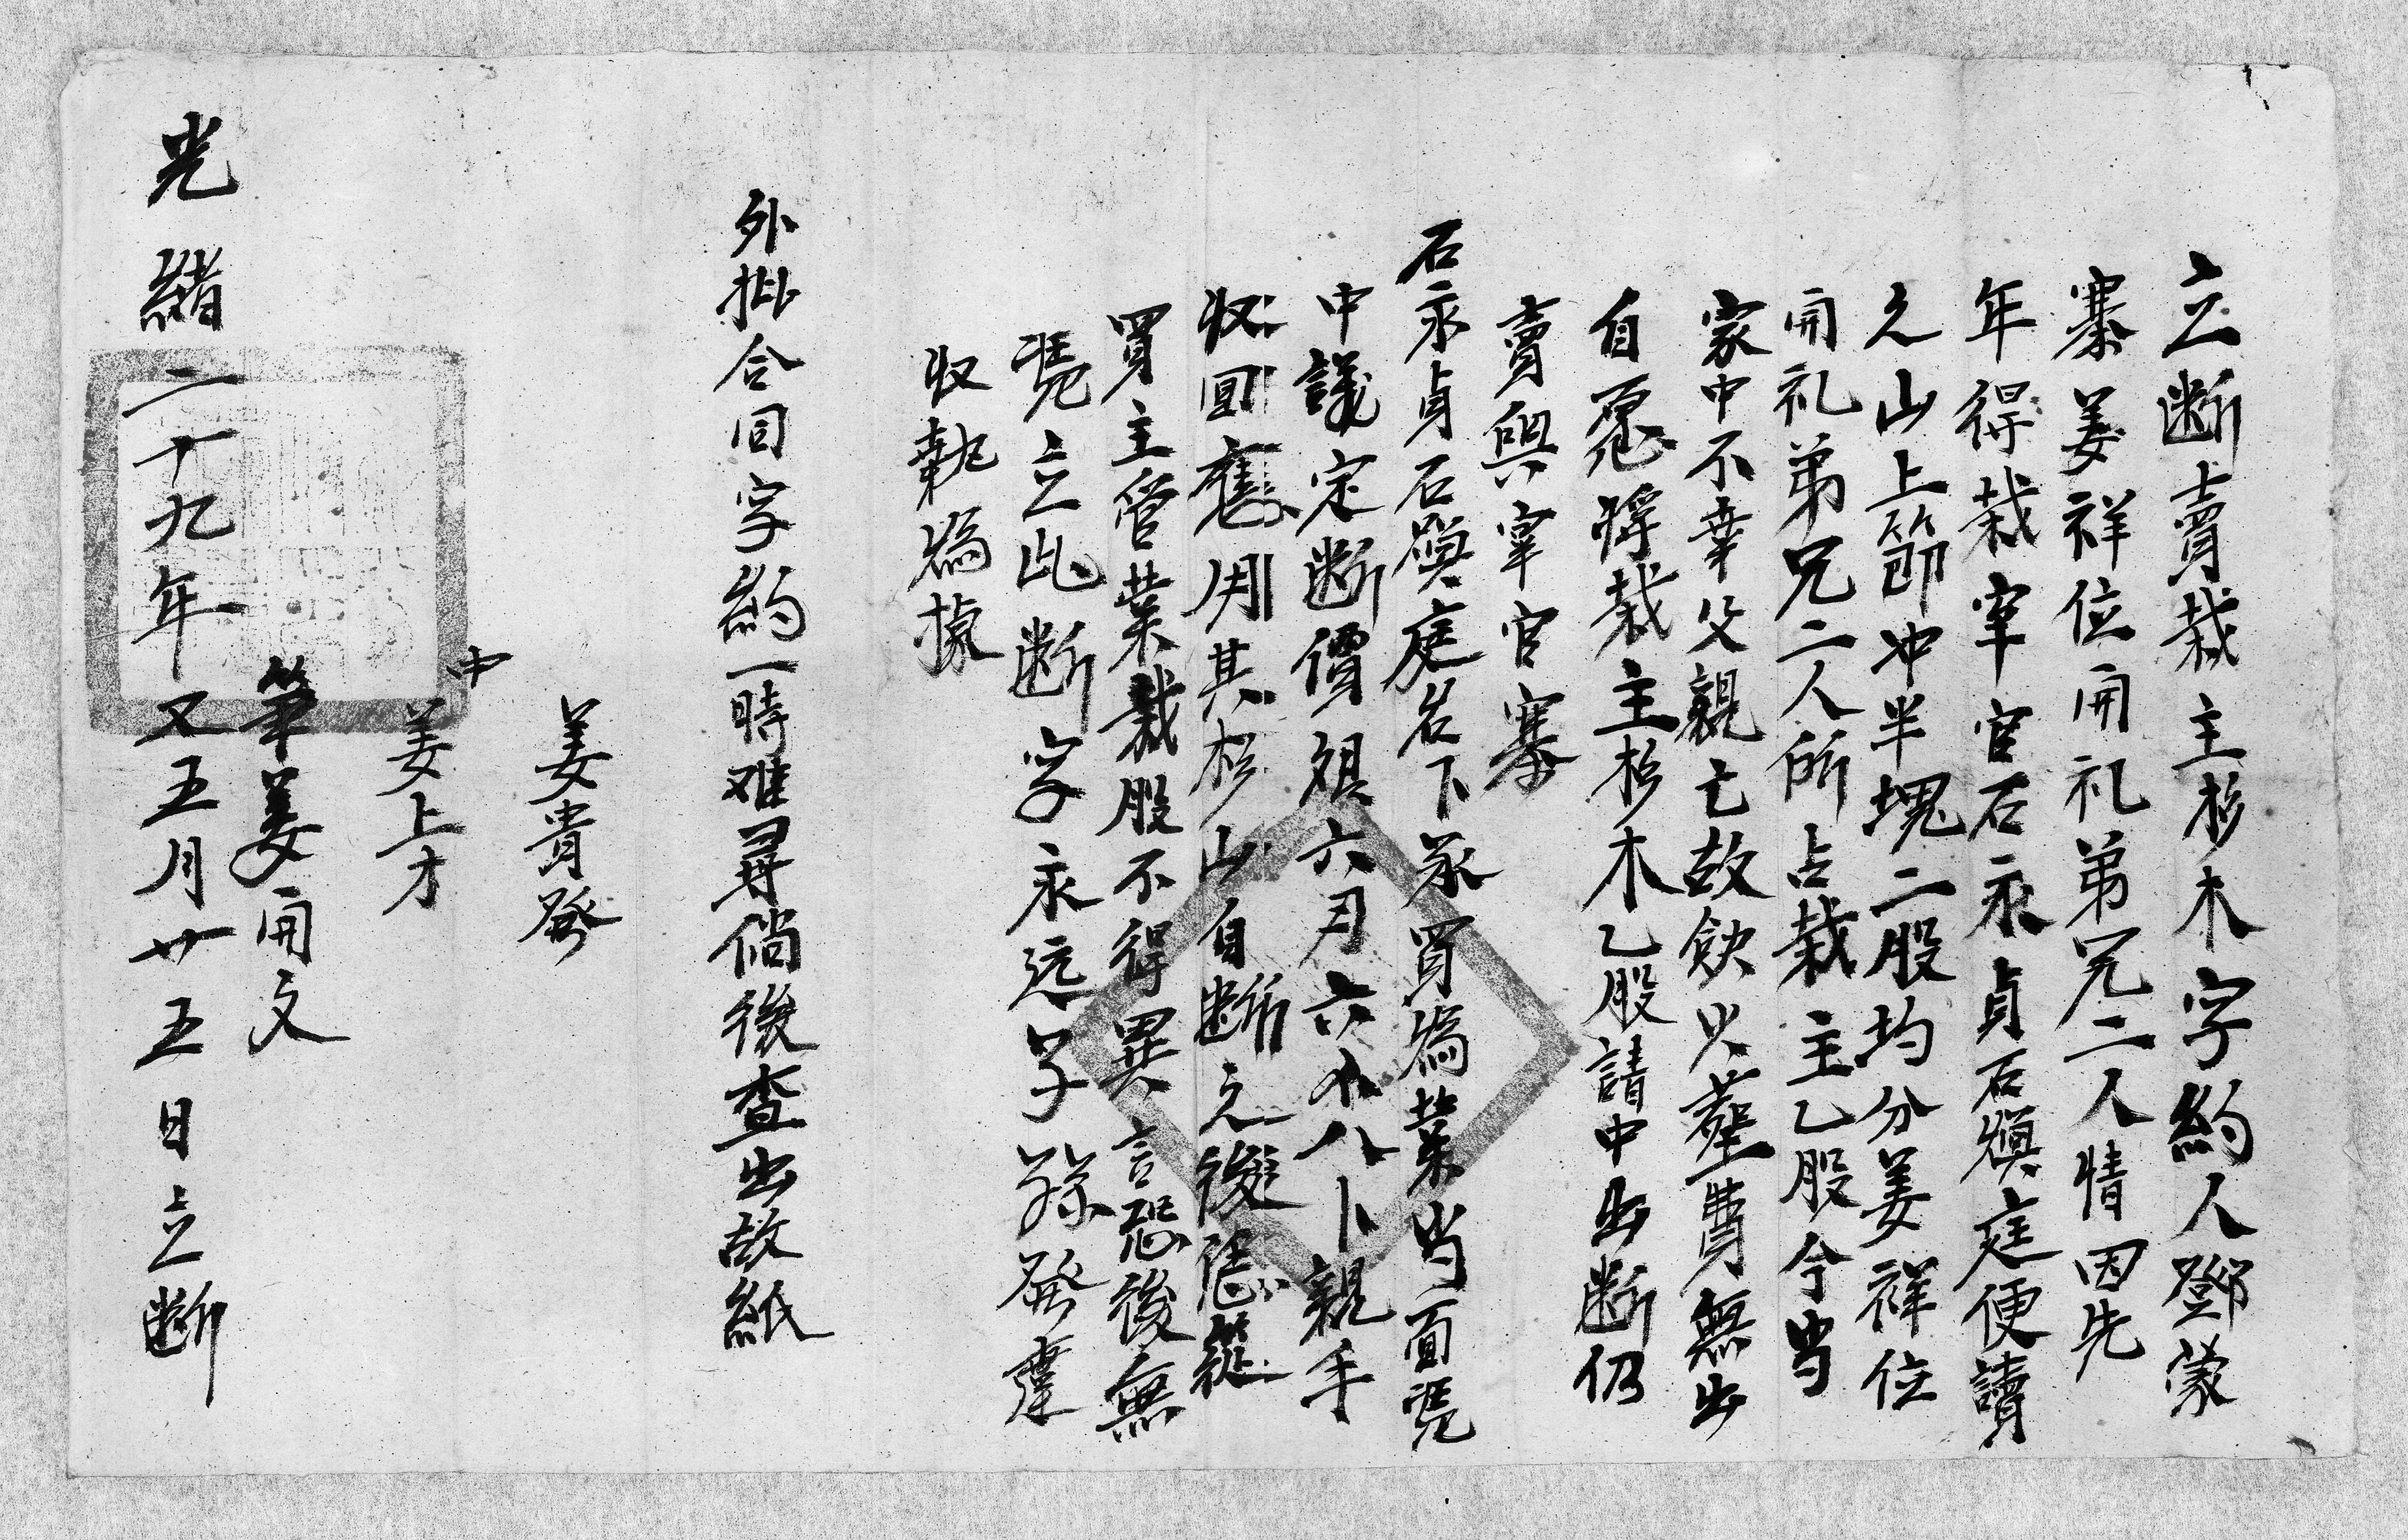 立断賣栽主杉木字約人鄧蒙
寨姜祥位開礼弟兄二人情因先
年得栽宰官石永貞石煥庭便讀
之山上節冲半塊二股均分姜祥位
開礼弟兄二人所占栽主乙股今当
家中不幸父親亡故缺少葬費無出
自愿将栽主杉木乙股請中出断仍
賣與宰官寨
石永貞石煥庭名下承買為業当面凭
中議定断價艮六刄六卜八卜親手
收回應用其杉山自断之後凴從
買主管業栽股不得異言恐後無
凭立此断字永遠子孫發達
收執為據
外批合同字約一時难尋倘後查出故紙
姜貴發
中
姜上才
筆姜開文
光緒二十九年又五月廿五日立断